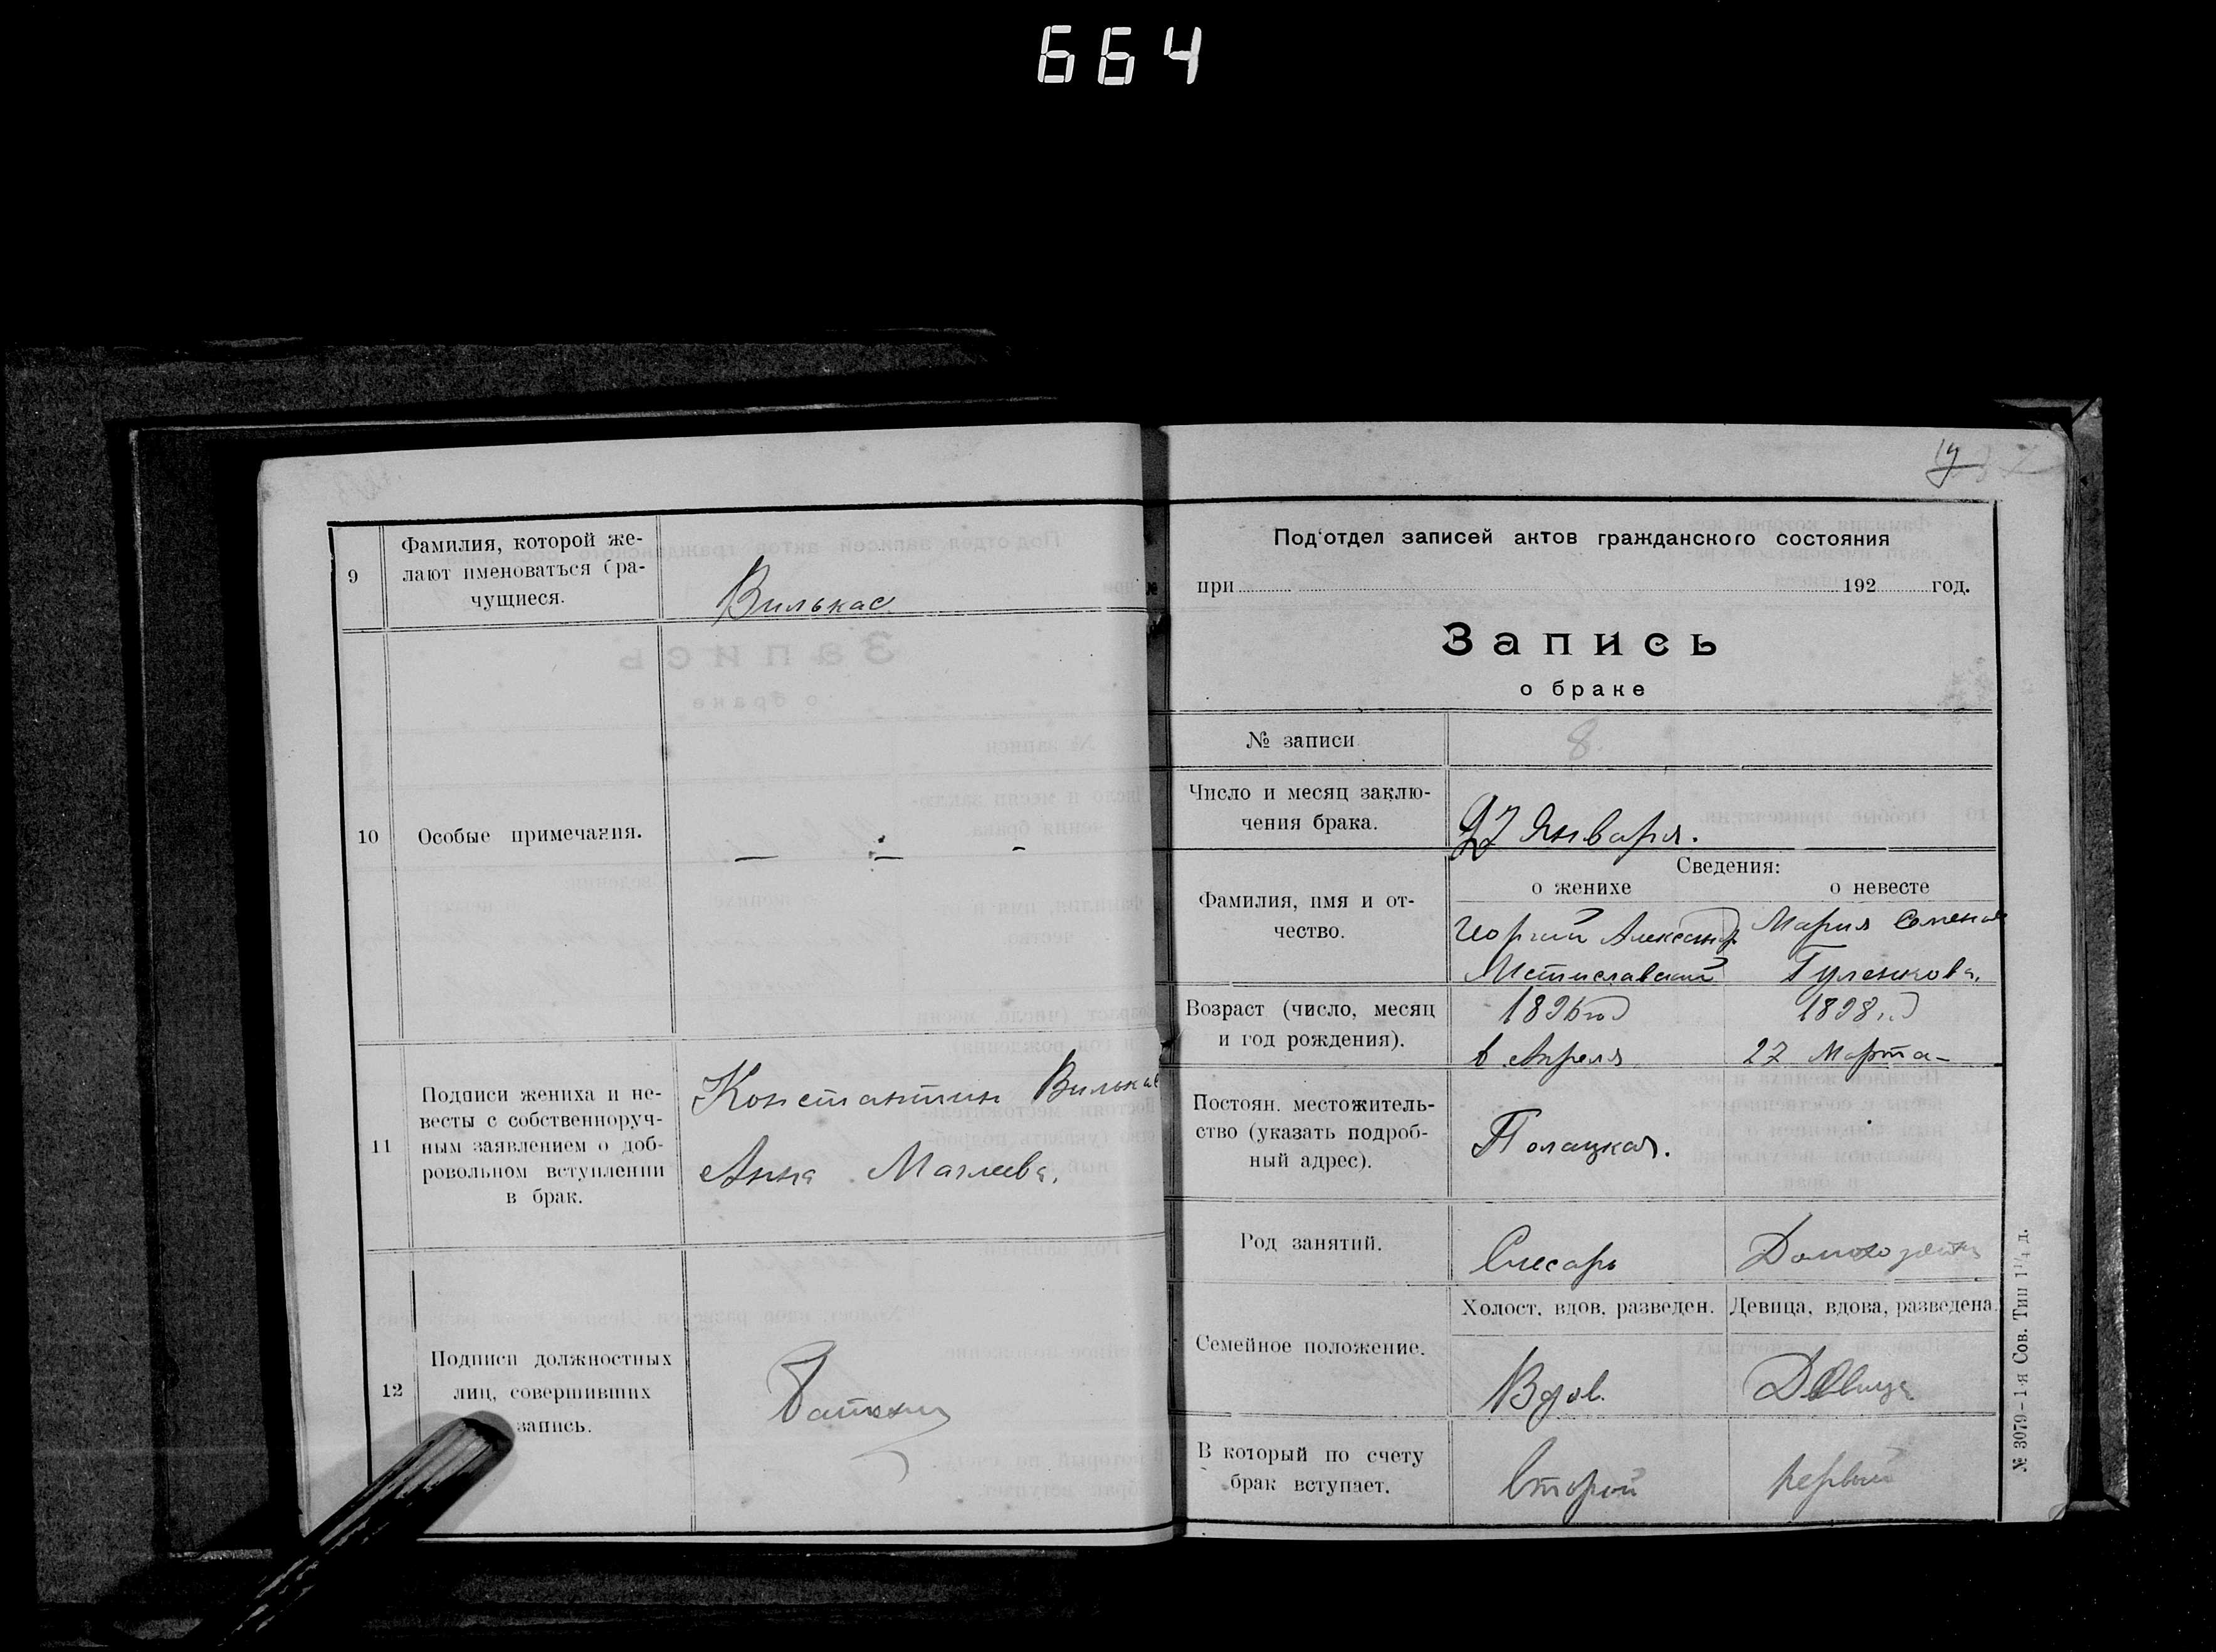 664
9
Фамилия, которой же-
лают именоваться бра-
чущиеся.
Вилькас
10
Особые примечания.
11
Подписи жениха и не-
весты с собственноруч-
ным заявлением о доб-
ровольном вступлении
в брак.
Константин Вилькас
Анна
12
Подписи должностных
лиц, совершивших
запись.
Под'отдел записей актов гражданского состояния
при 192 год.
Запись
о браке
№ записи
8.
Число и месяц заклю-
чения брака.
27 Января.
Сведения:
о женихе
о невесте
Фамилия, имя и от-
чество.
Георгий Александр
Мстиславский
Мария
Гуленкова.
Возраст (число, месяц
и год рождения).
1896 год
в Апреля
1898
27 Марта
Постоян. местожитель-
ство (указать подроб-
ный адрес).
Полацкая.
Род занятий.
Слесарь
Семейное положение.
Холост, вдов, разведен.
Девица, вдова, разведена.
Вдов.
Девица
В который по счету
брак вступает.
Второй
первый
№ 3079–1-я Сов. Тип 1¼ д.